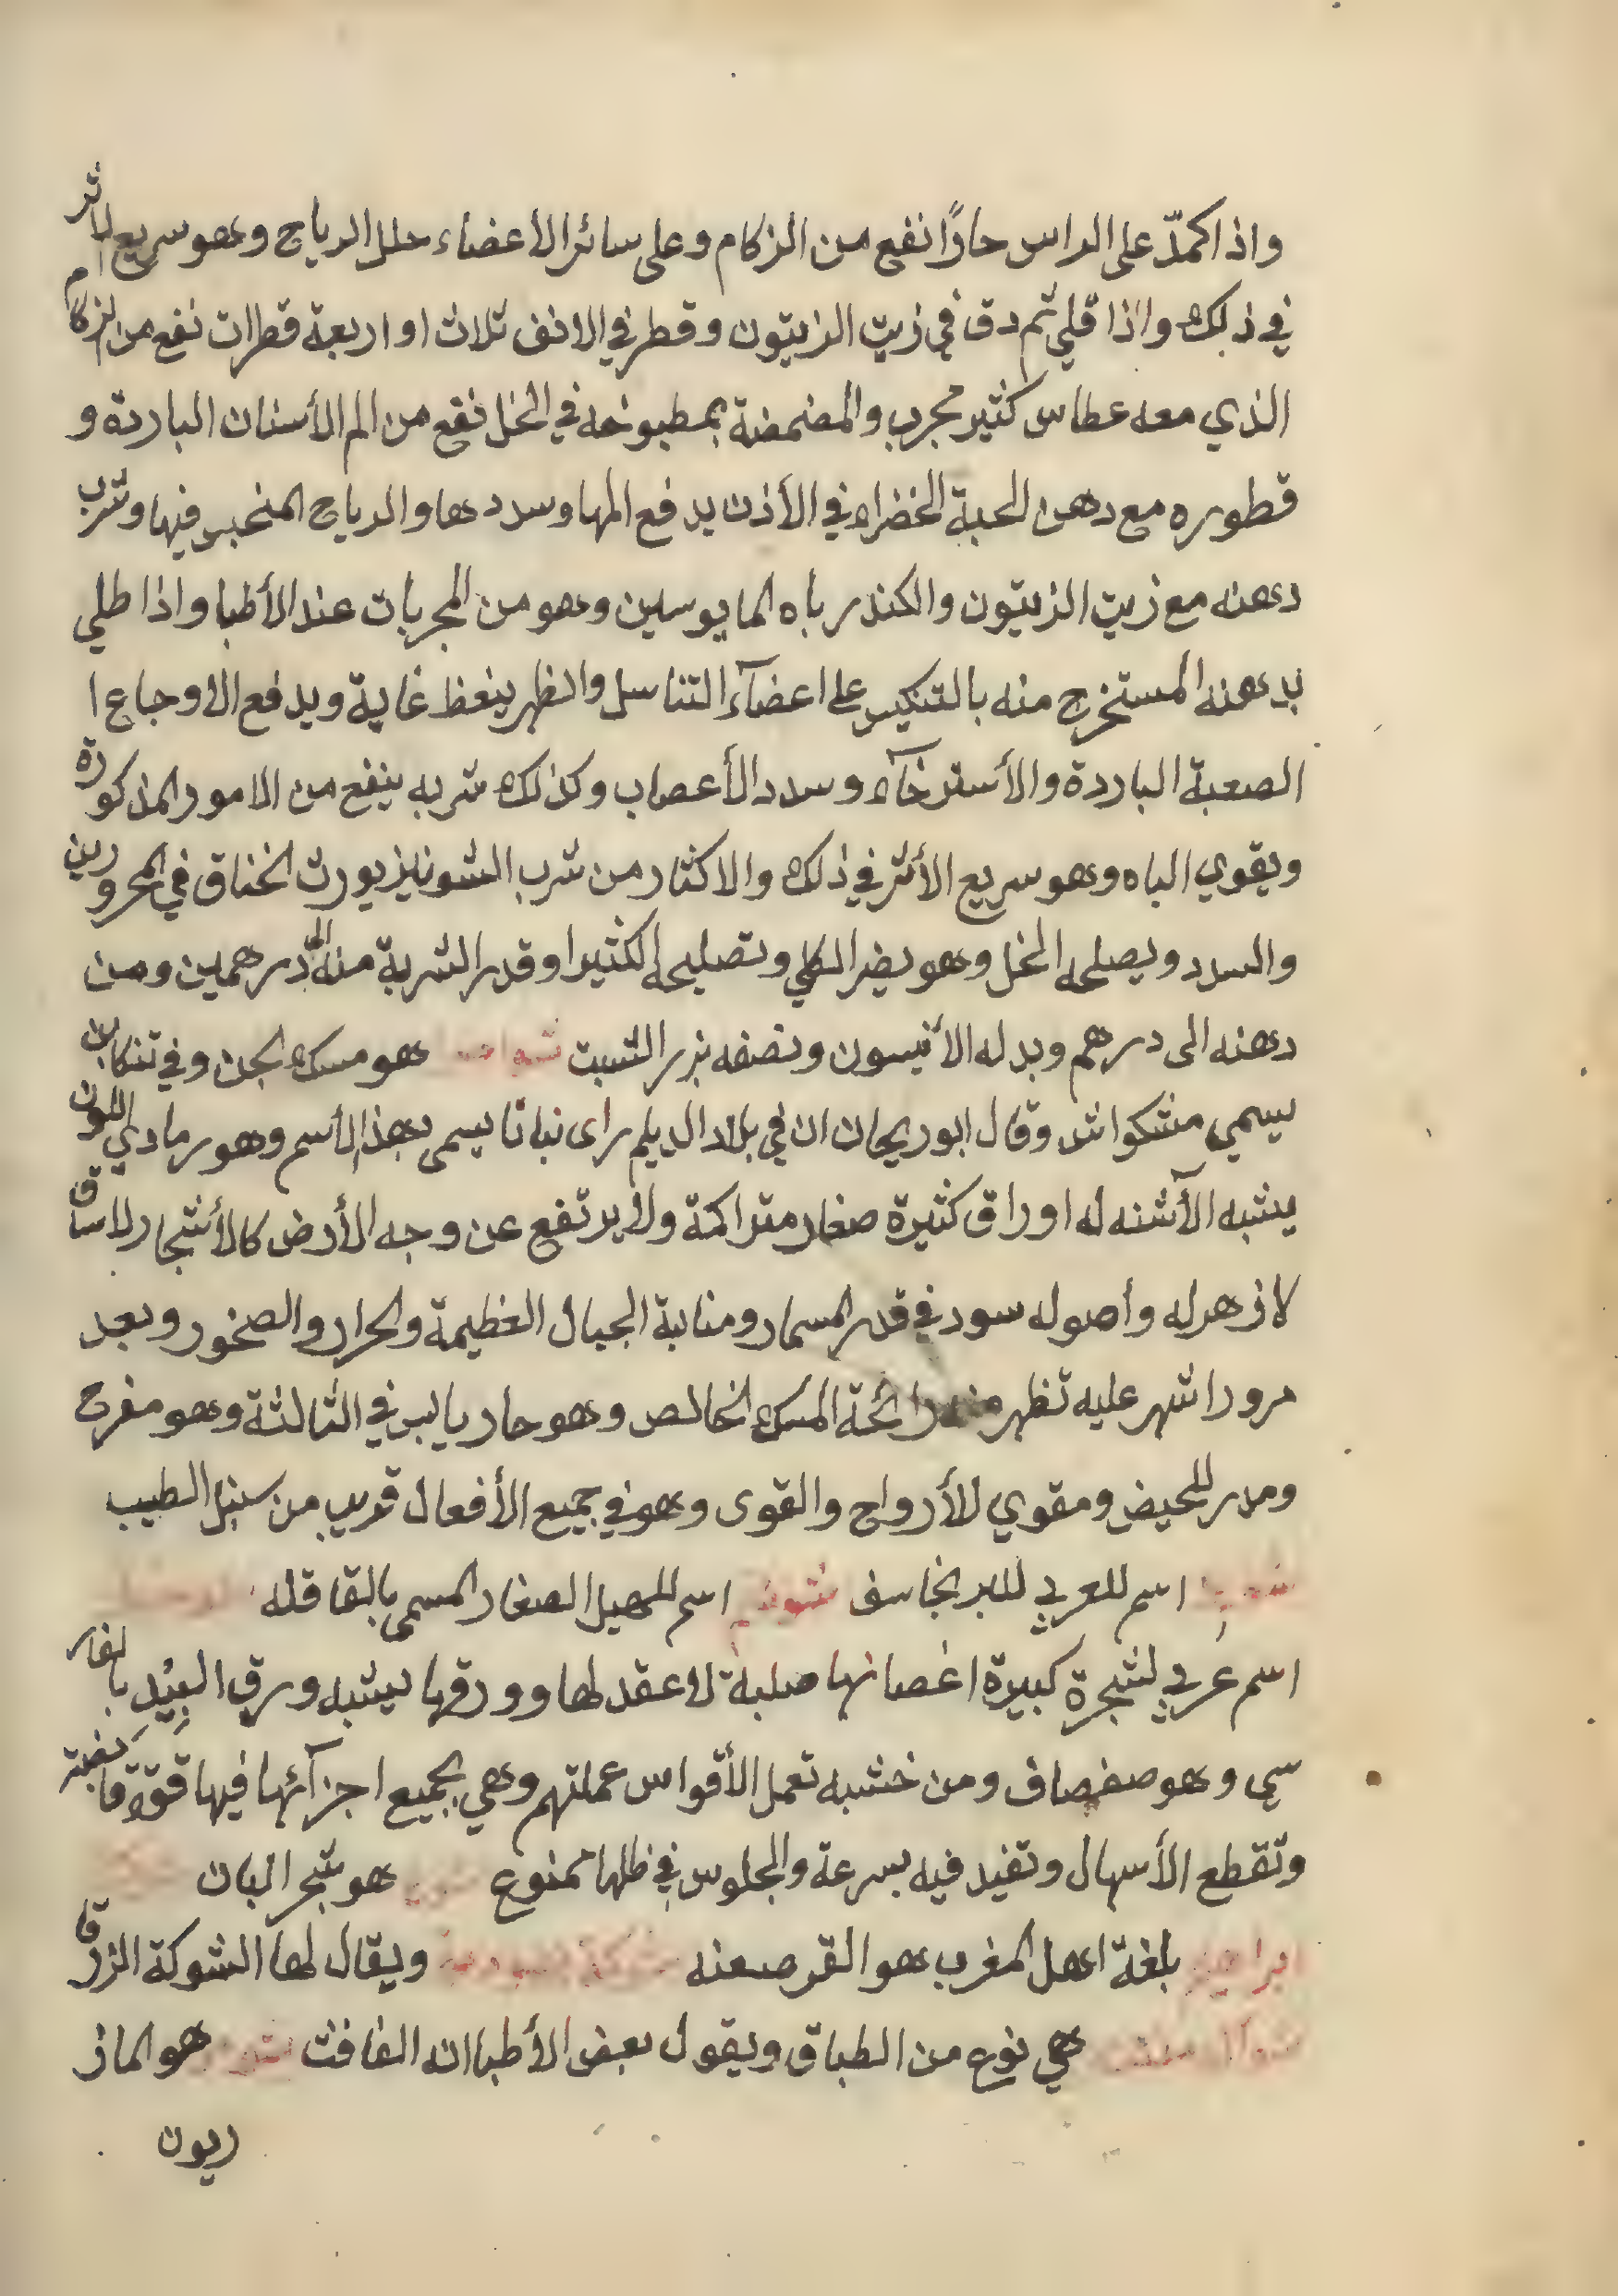 واذا كمدّ على الراس حارًا نفع من الزكام وعلى سائر الاعضاء حلل الرياح وهو سريع الاثر
في ذلك واذا قلي ثم دق في زيت الزيتون وقطر في الانف ثلاث او اربعة قطرات نفع من الزكام
الذي معه عطاس كثير مجرب والمضمضة بمطبوخه في الخل نفع من الم الأسنان الباردة و
قطوره مع دهن الحبة الخضراء في الأذن يدفع المها وسددها والرياح المنحبس فيها وشرب
دهنه مع زيت الزيتون والكندر باه المايوسين وهو من المجربات عند الأطبا واذا طلي
بدهنه المستخرج منه بالتنكيس على اعضآء التناسل والظهر ينعظ غاية ويدفع الاوجاع ا
الصعبة الباردة والأسترخآء وسدد الأعصاب وكذلك شربه ينفع من الامور المذكورة
ويقوي الباه وهو سريع الأثر في ذلك والاكثار من شرب الشونيز يورث الخناق في المحرورين
والسدد ويصلحه الخل وهو يضر الكلي وتصليحه الكثيرا وقدر الشربة منه الى درهمين ومن
دهنه الى درهم وبدله الأنيسون ونصفه بزر الشبت هو مسك الجن وفي تنكابن
يسمي مشكواش وقال ابوريحان ان في بلاد الديلم راى نباتا يسمى بهذا الأسم وهو رمادي اللون
يشبه الآشنه له اوراق كثيرة صغار متراكمة ولا يرتفع عن وجه الأرض كالأشجار لا ساق
لا زهر له وأصوله سود في قدر المسمار ومنابة الجبال العظيمة والحرار والصخور وبعد
مرور اشهر عليه تظهر منه رائحة المسك الخالص وهو حار يابس في الثالثة وهو مفرح
ومدر للحيض ومقوي للأرواح والقوى وهو في جميع الأفعال قريب من سنبل الطيب
اسم للعربي للبرنجاسف اسم للهيل الصغار المسمى بالقاقله
اسم عربي لشجرة كبيرة اغصانها صلبة لا عقد لها وورقها يشبه ورق البيد بالفار
سي وهو صفصاف ومن خشبه تعمل الأقواس عملتهم وهي بجميع اجزآئها فيها قوة قابضة
وتقطع الأسهال وتفيد فيه بسرعة والجلوس في ظلها ممنوع هو شجر البان
ابراهيم بلغة اهل المغرب هو القرصعنه ويقال لها الشوكة الزرقا
هي نوع من الطباق ويقول بعض الأطبا انه الغافث هو الماز
ريون